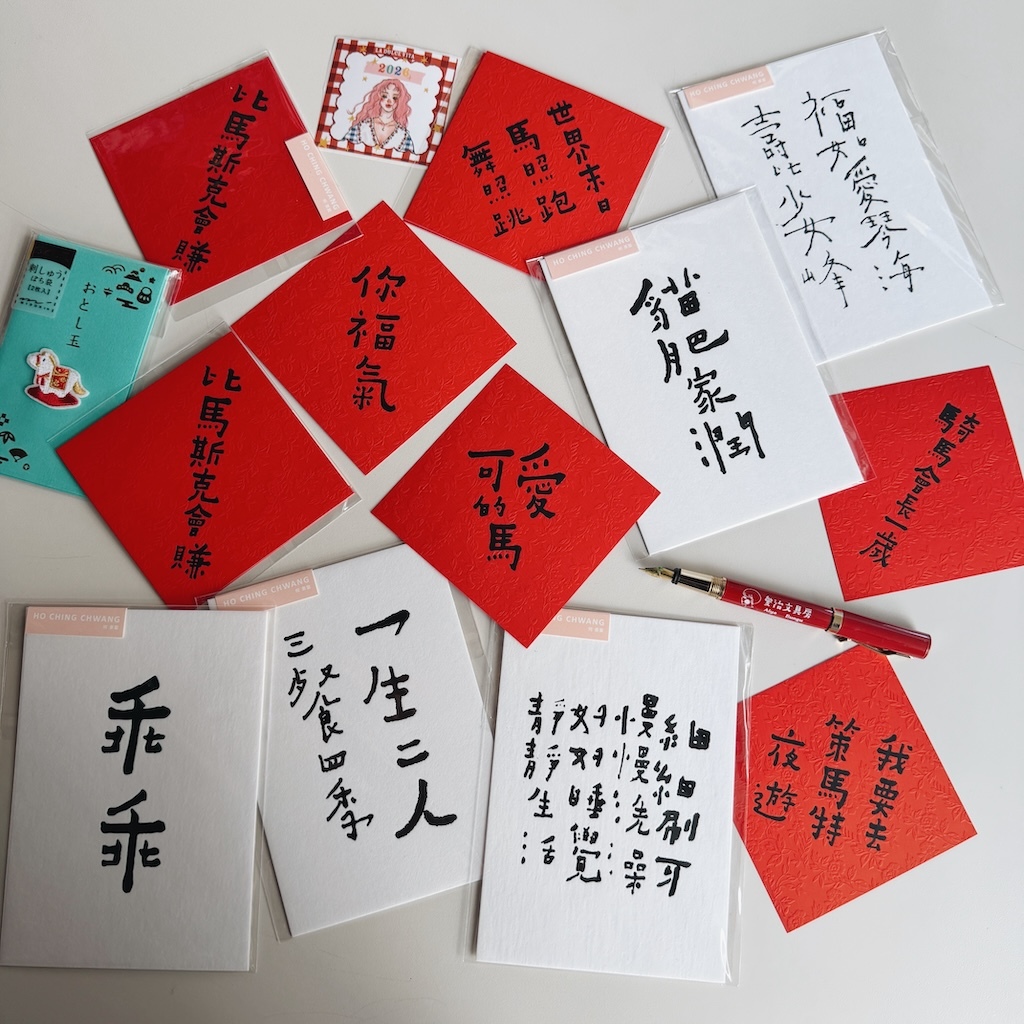 比馬斯克會賺
HO CHING CHWANG
2026
世界末日
馬照跑
舞照跳
HO CHING CHWANG
福如愛琴海
壽比少女峰
刺しゅう
ぽち袋
【2枚入】
おとし玉
你福氣
HO CHING CHWANG
貓肥家潤
比馬斯克會賺
可愛
的馬
騎馬會長一歲
文具房
HO CHING CHWANG
乖乖
HO CHING CHWANG
一生二人
三餐四季
細細刷牙
慢慢洗澡
好好睡覺
靜靜生活
我要去
策馬特
夜遊